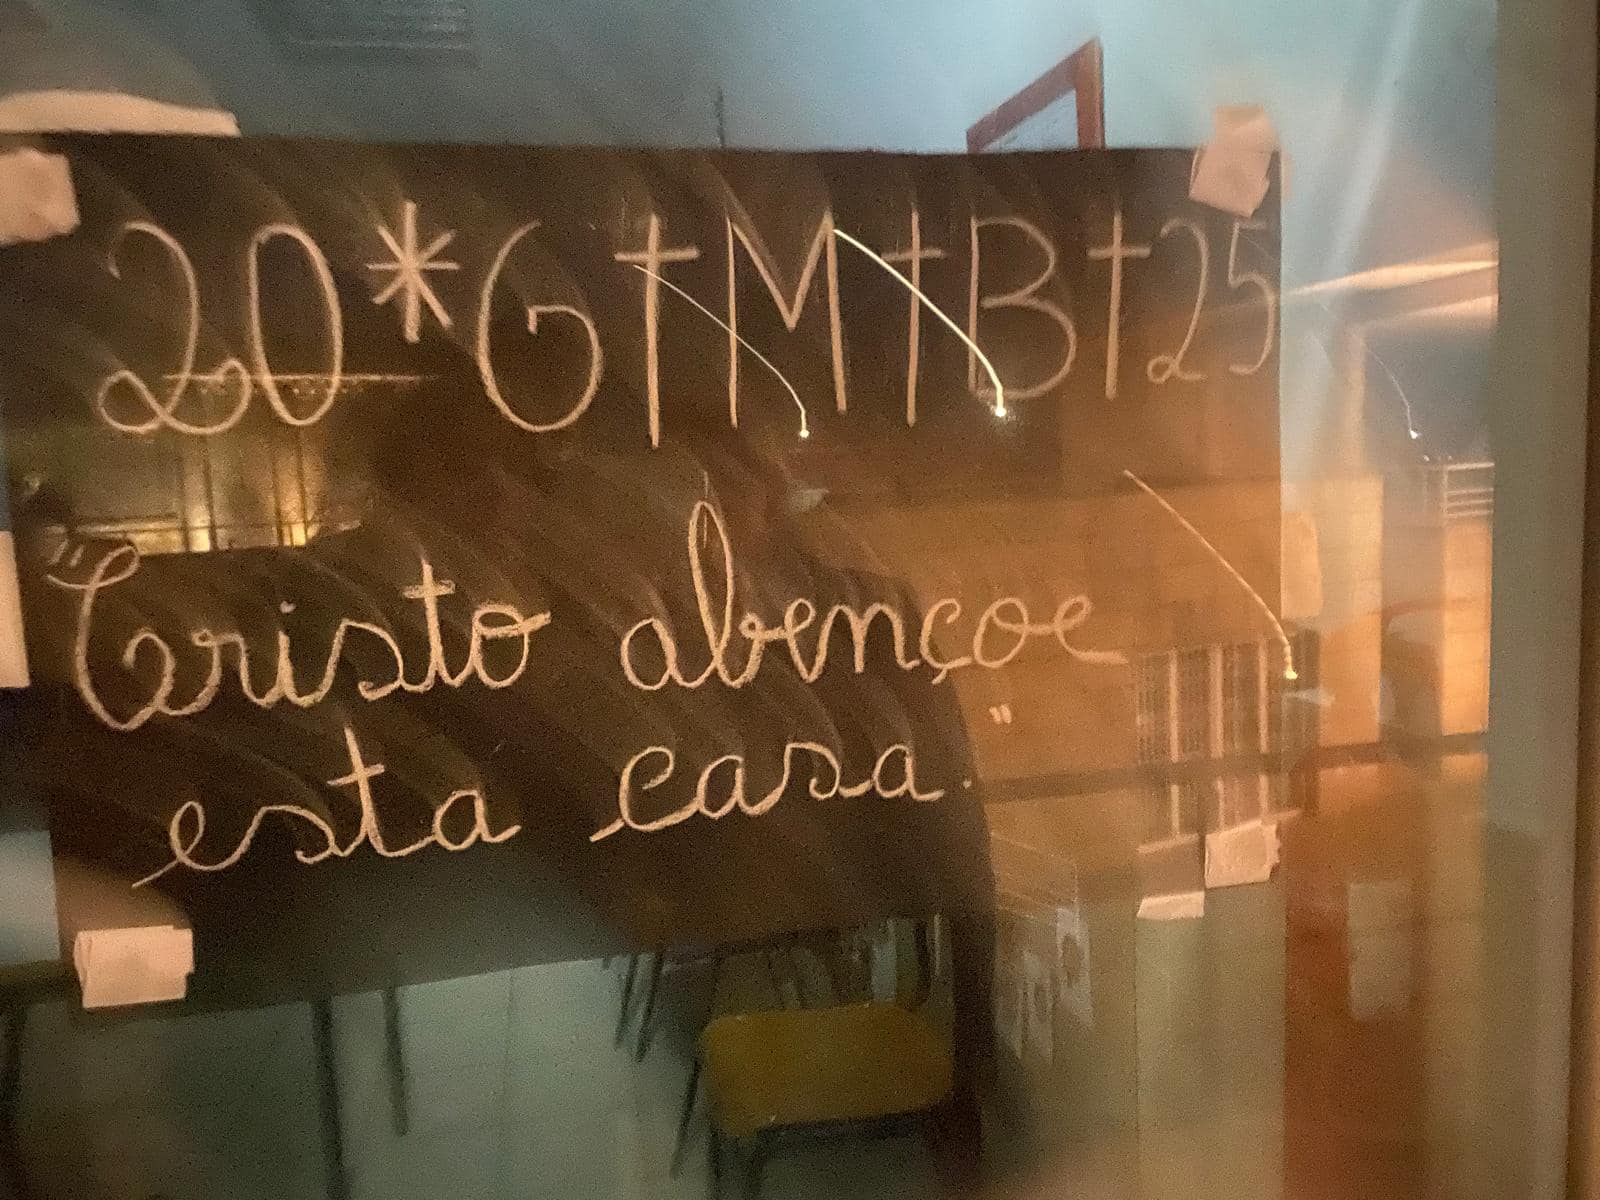 20*G†M†B†25
"Cristo abençoe
esta casa."